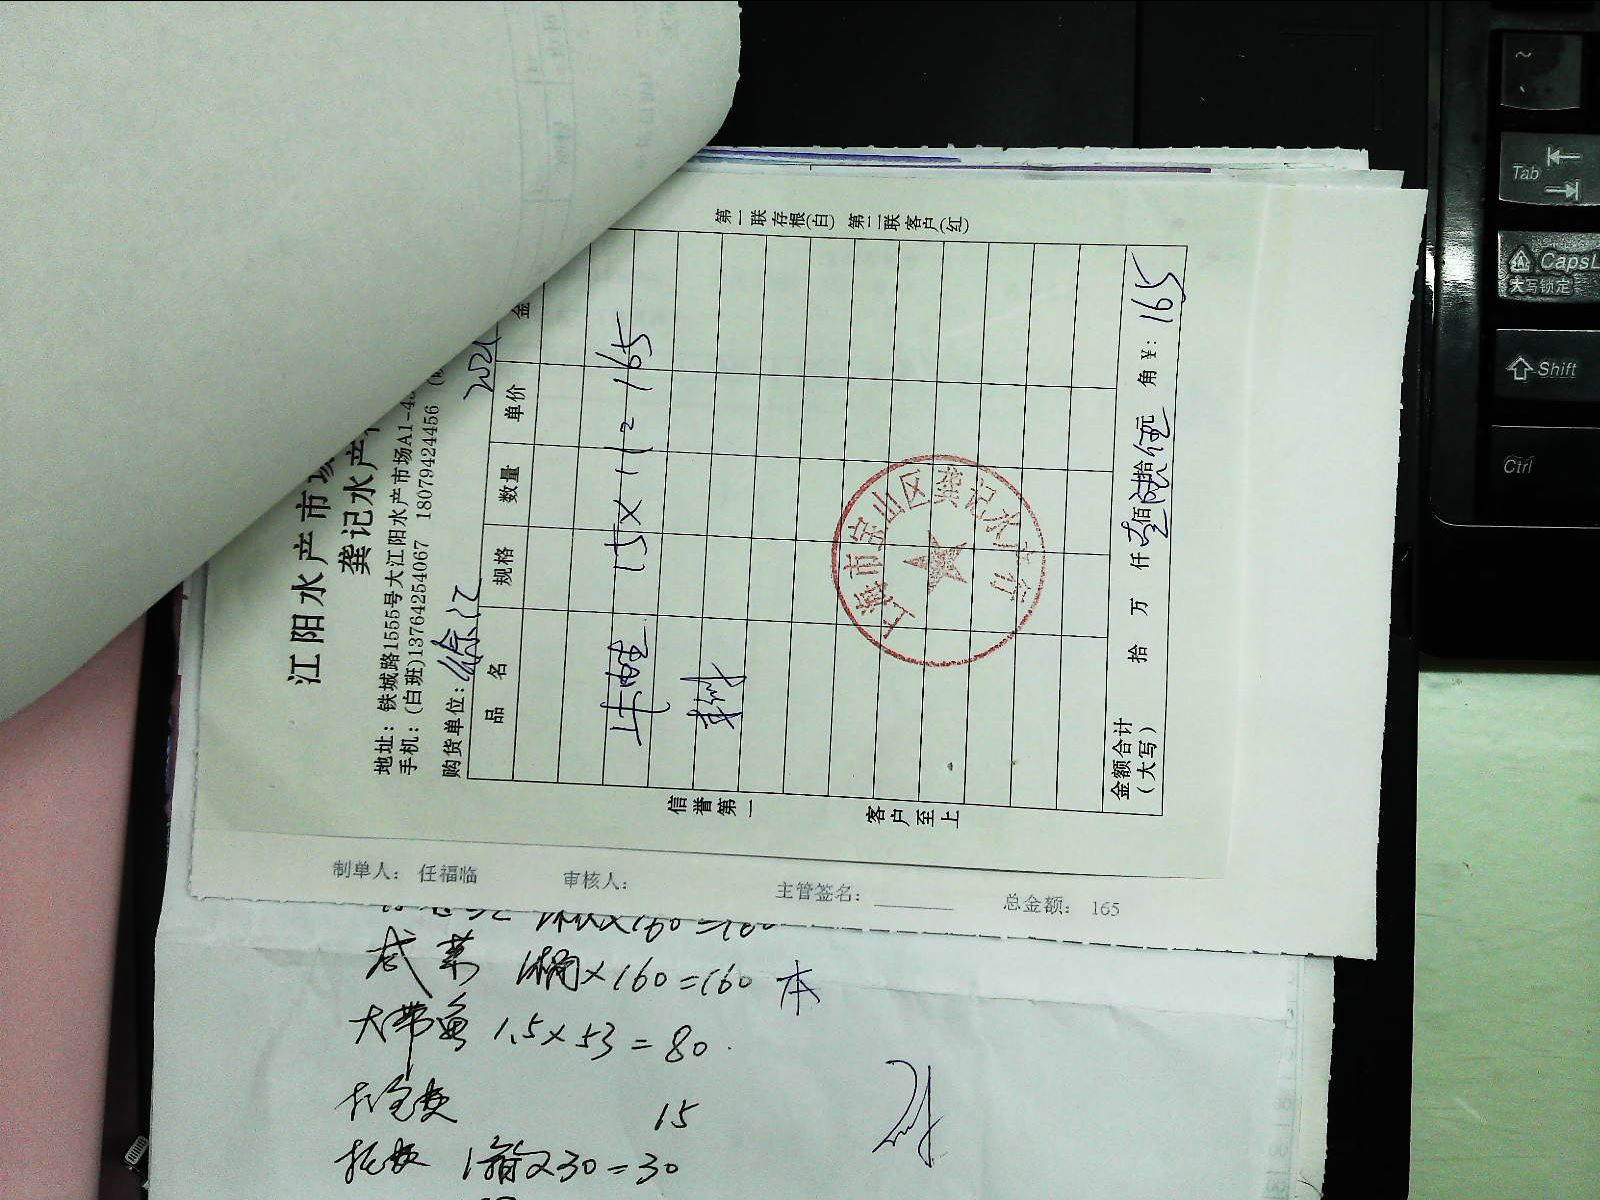 第一联存根(白) 第二联客户(红)
江阳水产市场
龚记水产
地址：铁城路1555号大江阳水产市场A1-4
手机：(白班)13764254067 18079424456
购货单位：徐汇
2021
品名 规格 数量 单价 金
牛蛙 15×11 = 165
金额合计(大写) 拾 万 仟 壹佰陆拾伍元 角 ¥：165
信誉第一 客户至上
上海市宝山区龚记水产行
制单人： 任福临 审核人： 主管签名： 总金额： 165
×160=160
咸菜 1桶×160=160 本
大带鱼 1.5×53=80
15
1箱×30=30
~
Tab
CapsL
大写锁定
Shift
Ctrl